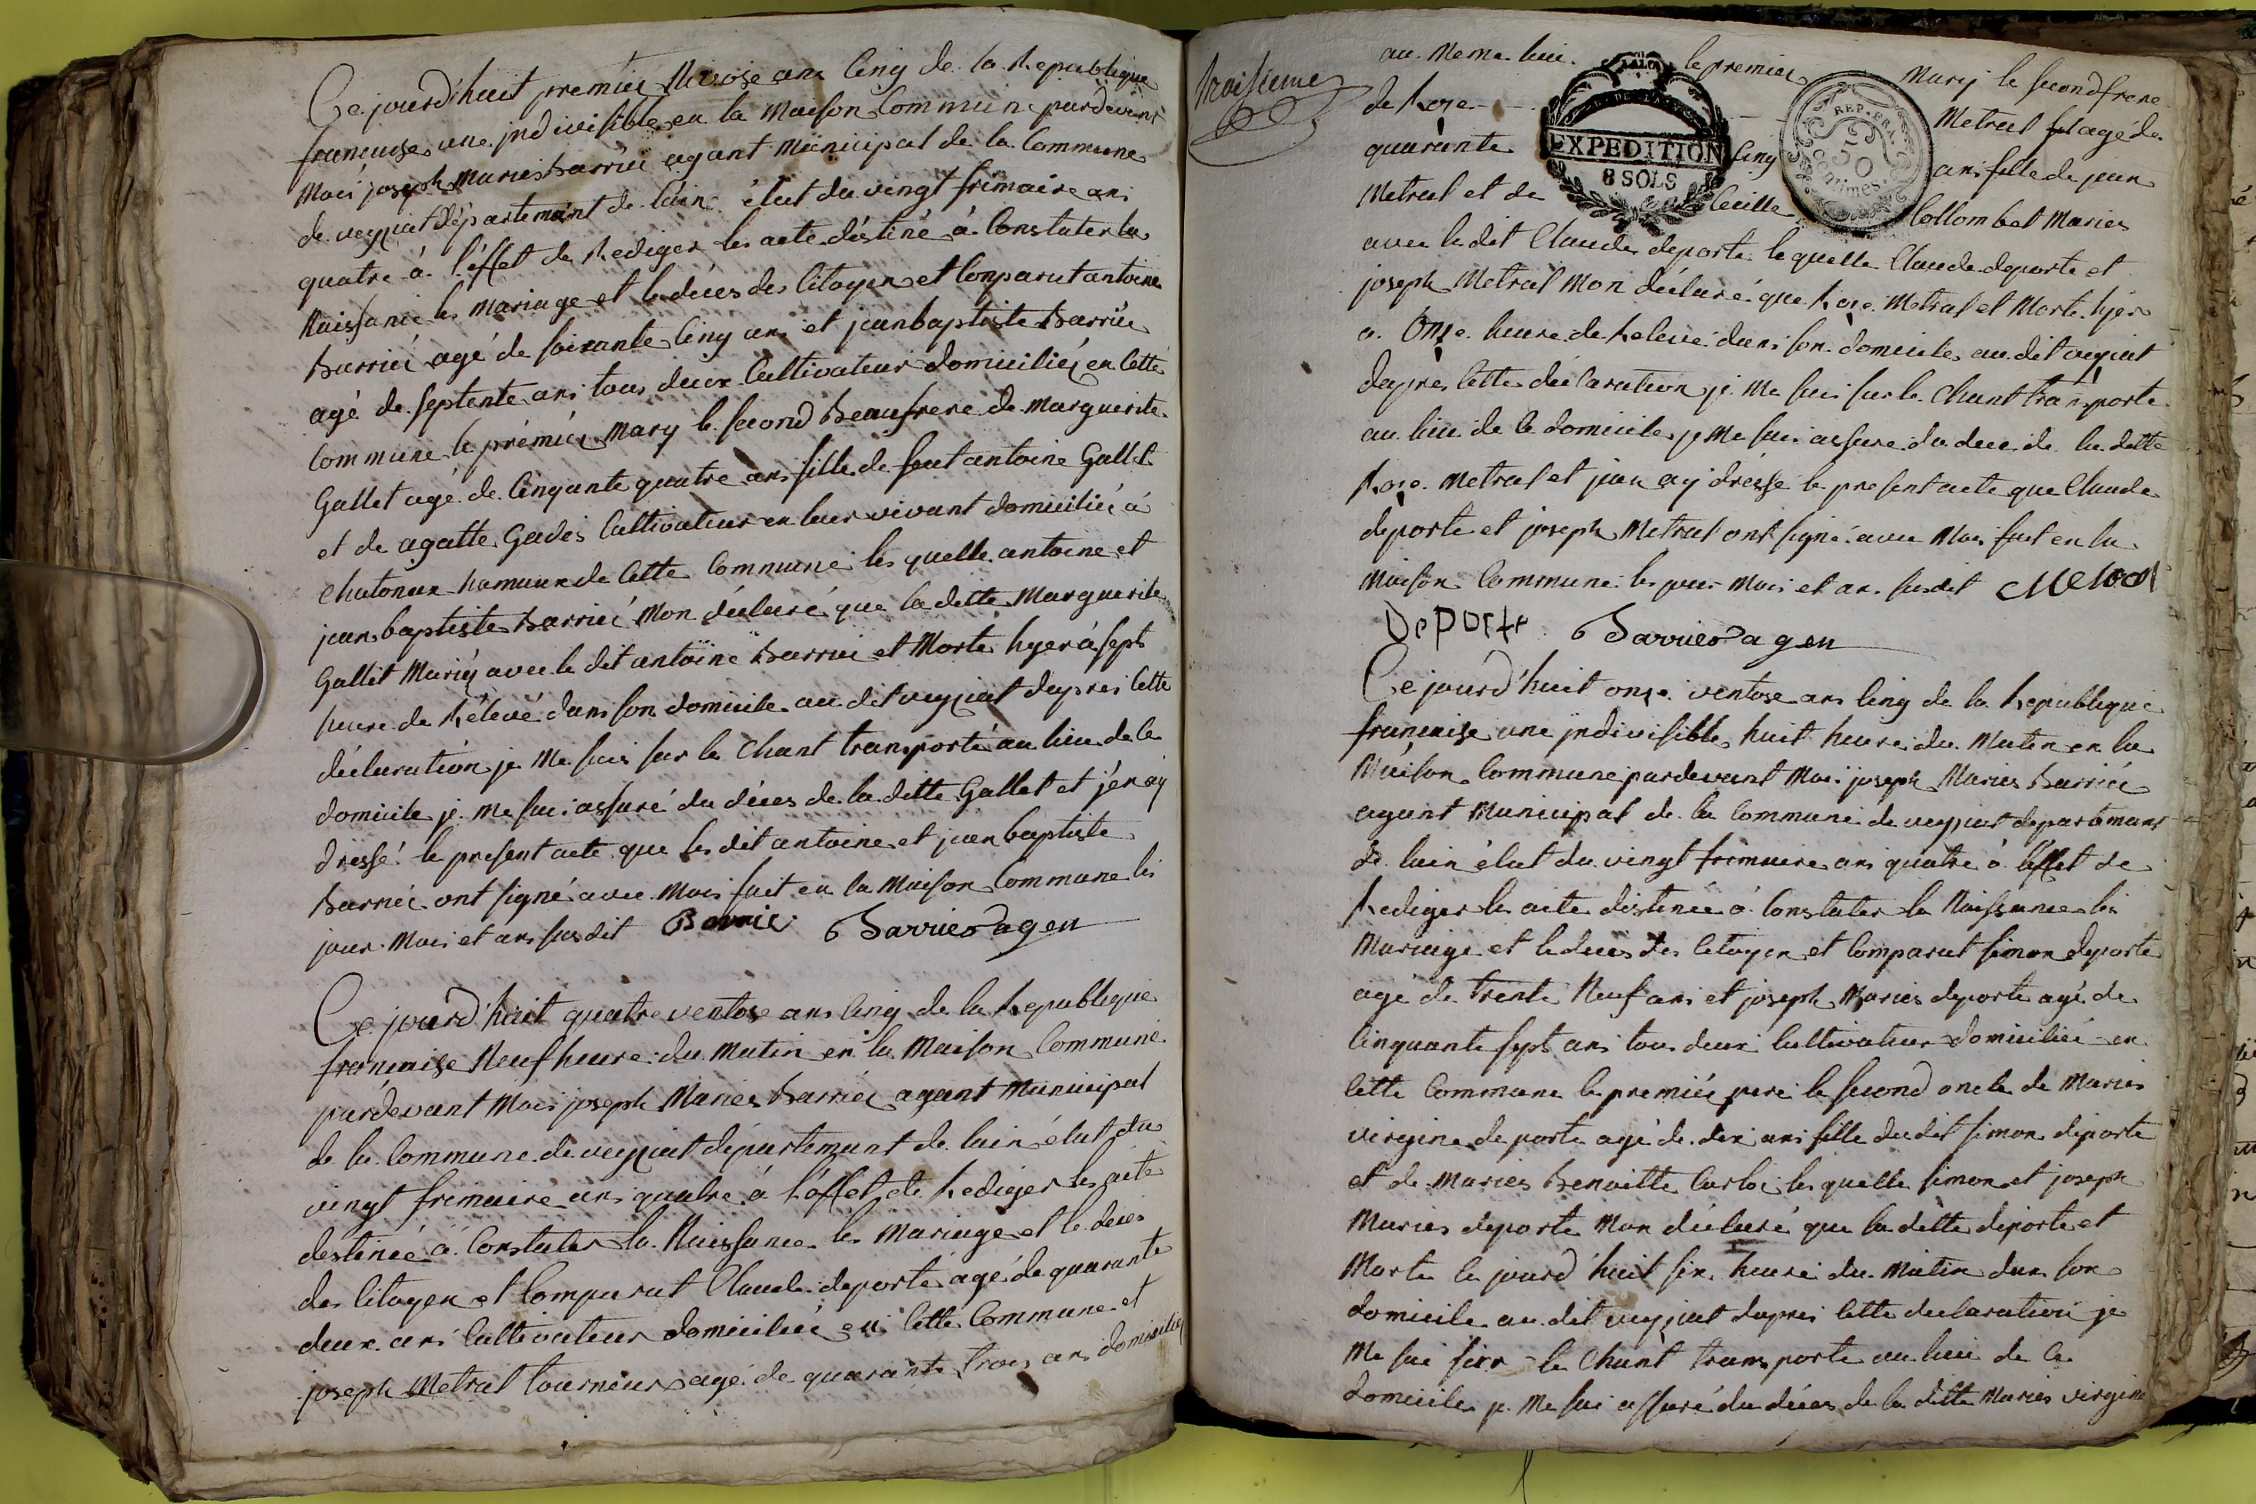 Ce jourd'huit premiér Nivose ans cinq de la Republique
francaise une jndivisible en la Maison Commune pardevant
Moi joseph Maries Barriér agant Municipal de la Commune
de veyziat département de lain élut du vingt frimaire ans
quatre á l'éffet de Rediger les acte déstiné á Constater la
Naissance les Mariage et le déces des Citoyen et Comparut antoine
Barriéz agé de soixante cinq ans et jean baptiste Barriéz
agé de septente ans tous deux Cultivateur domiciliéz en Cette
Commune le prémiér Mary le second Beaufrere de Marguerite
Gallet agé de Cinquante quatre ans fille de feut antoine Gallet
et de agatte Gudés Cultivateur en leur vivant domiciliéz á
Chatonax hameaux de Cette Commune les quelle antoine et
jean baptiste Barriéz Mon déclaré que la ditte Marguerite
Gallet Mariéz avec le dit antoine Barriéz et Morte hyer á sept
heure de Rélevé dans son domicile au dit veyziat dapres Cette
déclaration je Me suis sur le Chant transporté au lieu de le
domicile je me suis assuré du déces de la ditte Gallet et j'en ay
dressé le present acte que les dit antoine et jean baptiste
Barriéz ont signé avec Moi fait en la Maison Commune les
jour Mois et ans susdit Barrie Barrier agen
Ce jourd'huit quatre ventose ans cinq de la Republique
francaise Neuf heure du Matin en la Maison Commune
pardevant Moi joseph Maries Barriéz agant Municipal
de la Commune de veyziat département de lain élut du
vingt frimaire ans quatre á l'éffet de Rediger les acte
destinée á Constater la Naissance les Mariage et le déces
des Citoyen et Comparut Claude deporte agé de quarante
deux ans Cultivateur domiciliéz en Cette Commune et
joseph Metral tourneur agé de quarante trois ans domicilié
troisieme
au Meme lieu le premier Mary le second frere
de Roze Metral agé de
quarante Cinq ans fille de jean
Metral et de Collombet Maries
EXPEDITION
8 SOLS
REP. FRA.
50
Centimes.
avec le dit Claude deporte lequelle Claude deporte et
joseph Metral Mon déclaré que Roze Metral et Morte hjer
a Onze heure de Relevé dans son domicile au dit veyziat
dapres Cette déclaration je Me suis sur le Chant transporte
au lieu de le domicile je Me suis assure du dece de la ditte
Roze Metral et jean ay dréssé le present acte que Claude
deporte et joseph Metral ont signé avec Moi fait en la
Maison Commune les jour Mois et ans susdit Metral
Deporte Barrier agen
Ce jourd'huit onze ventose ans cinq de la Republique
francaise une jndivisible huit heure du Matin en la
Maison Commune pardevant Moi joseph Maries Barriéz
agant Municipal de la Commune de veyziat departemant
de lain élut du vingt frimaire ans quatre á l'effet de
Rediger les acte distinée á Constater la Naissance les
Mariage et le déces des Citoyen et Comparut simon deporte
agé de trente Neuf ans et joseph Maries deporte agé de
Cinquante sept ans tous deux Cultivateur domiciliéz en
Cette Commune le premiéz pere le second oncle de Maries
virgine deporte agé de dix ans fille du dit simon deporte
et de Maries Benoitte Carloz les quelle simon et joseph
Maries deporte Mon déclaré que la ditte deporte et
Morte le jourd'huit six heure du Matin dans son
domicile au dit veyziat dapres Cette declaration je
Me sui sur le Chant transporte au lieu de le
domicile je Me sui assuré du déces de la ditte Maries virgine